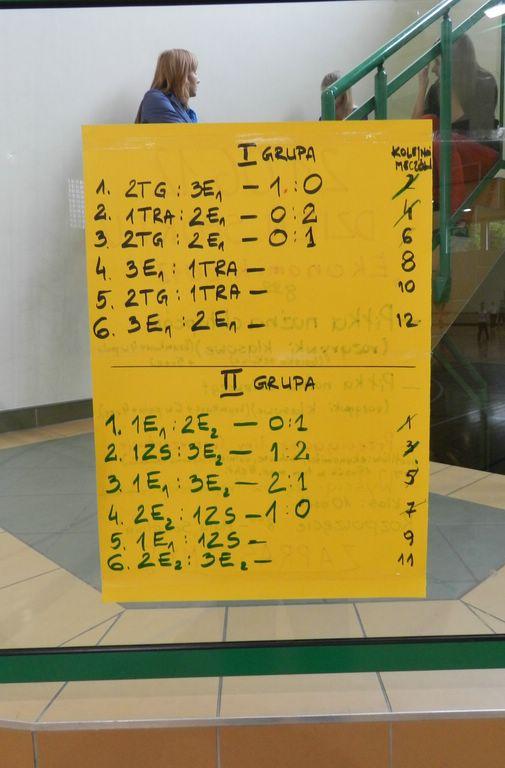 I GRUPA
KOLEJNO
MECZÓW
1. 2TG : 3E1 – 1:0 2
2. 1TRA : 2E1 – 0:2 4
3. 2TG : 2E1 – 0:1 6
4. 3E1 : 1TRA – 8
5. 2TG : 1TRA – 10
6. 3E1 : 2E1 – 12
II GRUPA
1. 1E1 : 2E2 – 0:1 1
2. 1ZS : 3E2 – 1:2 3
3. 1E1 : 3E2 – 2:1 5
4. 2E2 : 1ZS – 1:0 7
5. 1E1 : 1ZS – 9
6. 2E2 : 3E2 – 11